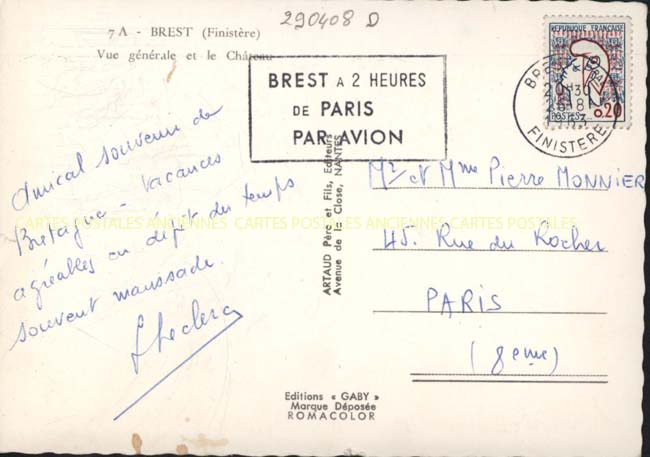 290408 D
7 A - BREST (Finistère)
Vue générale et le Château
BREST A 2 HEURES
DE PARIS
PAR AVION
REPUBLIQUE FRANÇAISE
0,20
POSTES
20H30
FINISTERE
Amical souvenir de
Bretagne - Vacances
agréables en dépit du temps
souvent maussade.
Leclerc
ARTAUD Père et Fils, Editeurs
Avenue de la Close, NANTES
Mr et Mme Pierre MONNIER
45, Rue du Rocher
PARIS
(8eme)
CARTES POSTALES ANCIENNES CARTES POSTALES ANCIENNES CARTES POSTALES
Editions « GABY »
Marque Déposée
ROMACOLOR